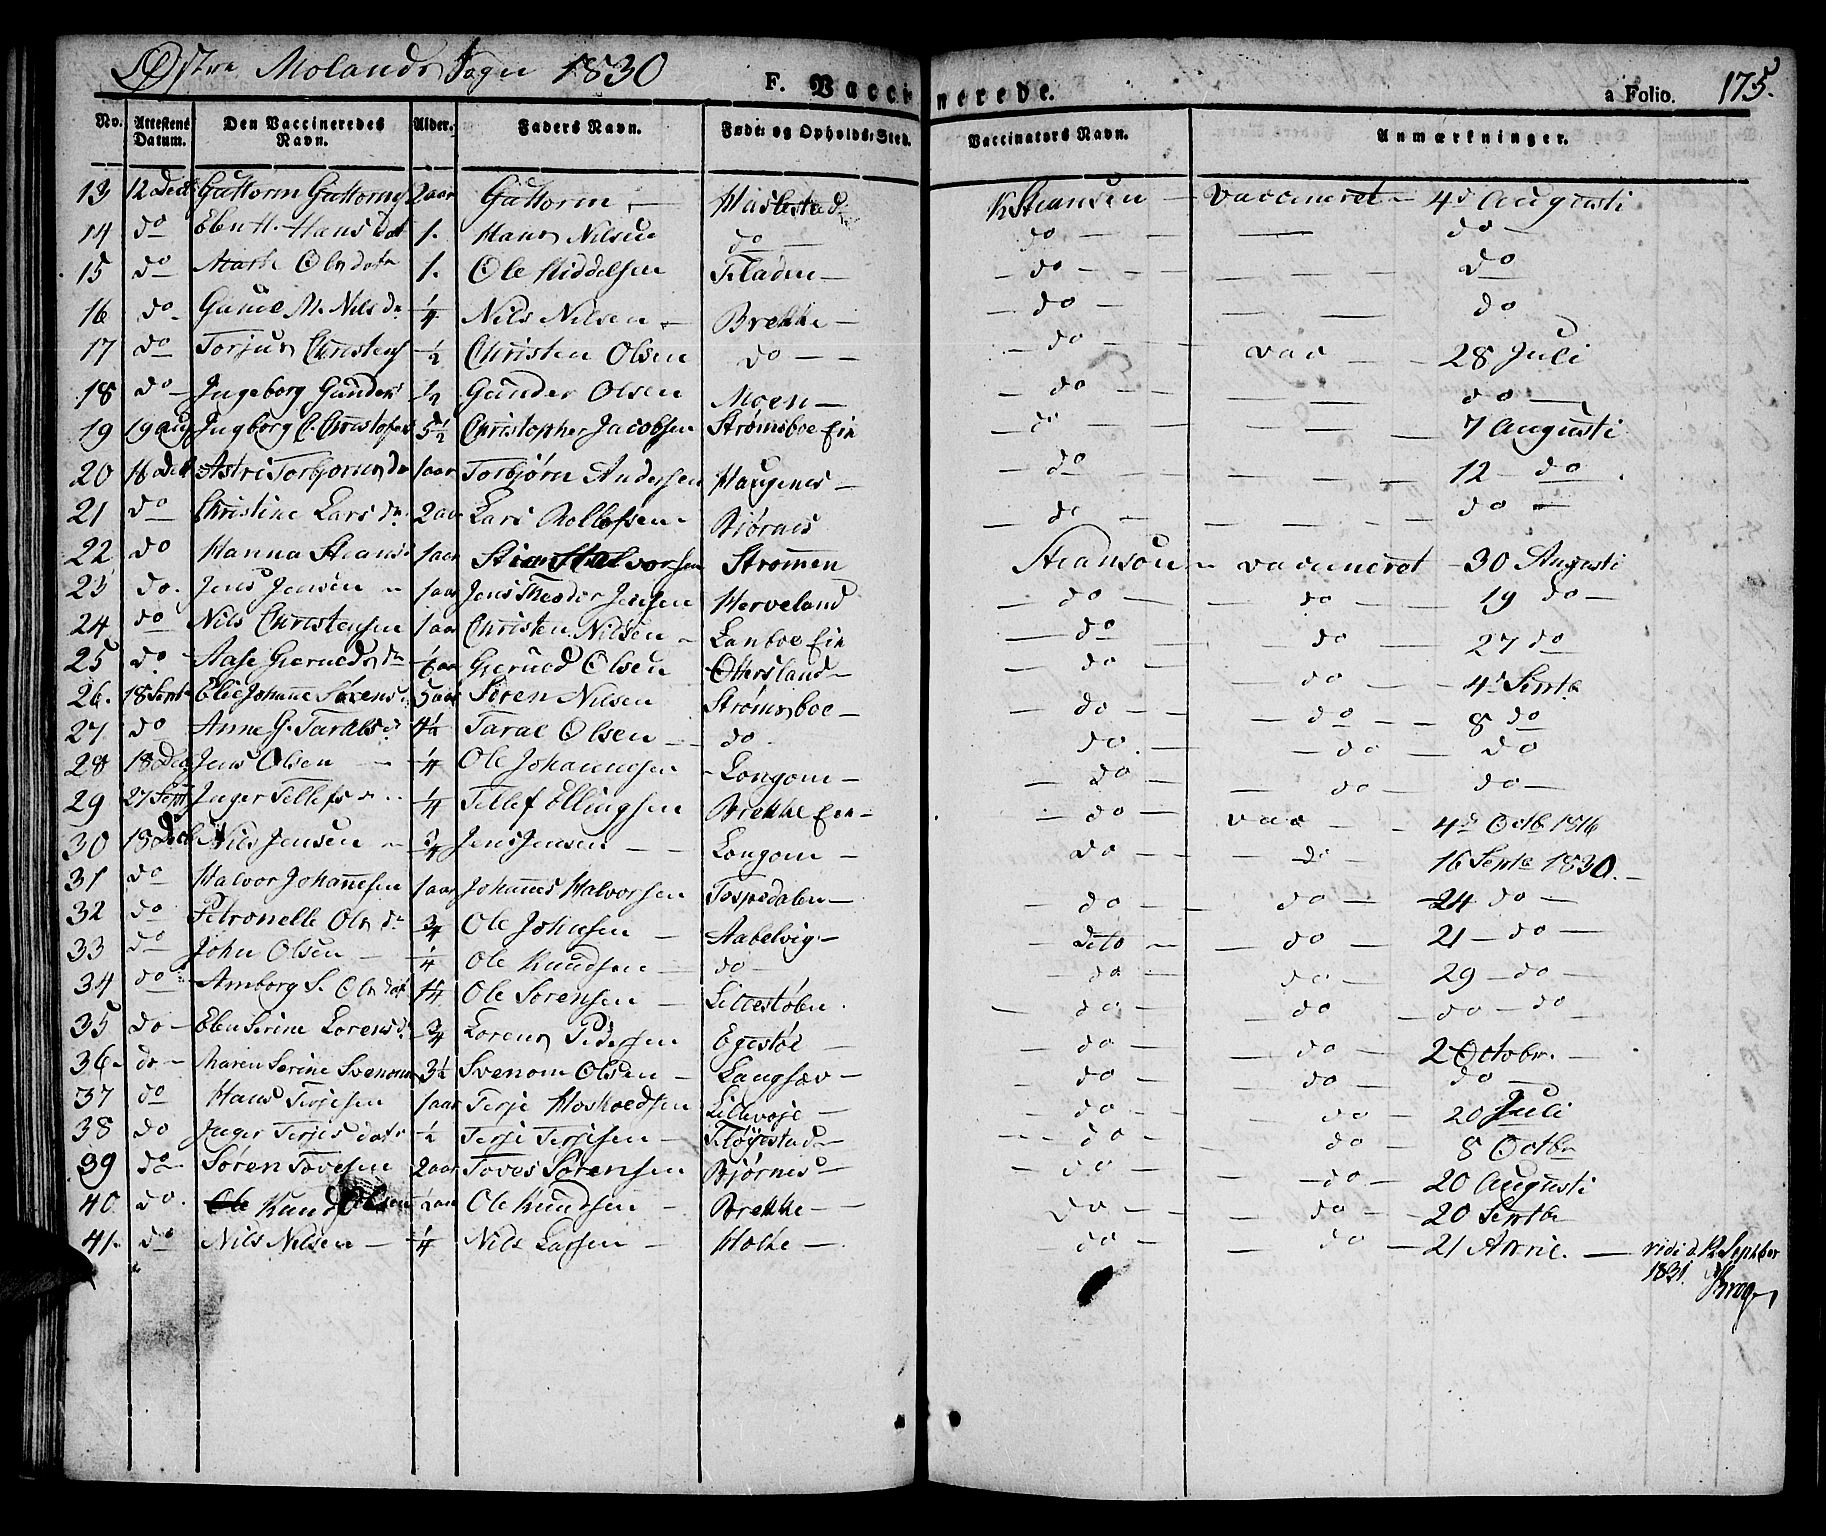 Østre Molands Sogn 1830 F. Vaccinerede. a Folio. 175.
No. Attestens Datum. Den Vaccineredes Navn. Alder. Faders Navn. Føde- og Opholds-Sted. Vaccinators Navn. Anmærkninger.
13 12 Decb Guttorm Guttorms 2 aar Guttorm — Haslestad Steansen — vaccineret — 4d Augusti
14 do Hans dat 1. Hans Nilsen do — do — — — do —
15 do Olsdatr 1. Ole — do — — — do
16 do. Gunil M. Nils dr 1/4 Nils Nilsen — Brekke — do — — — do
17 do Torjus Christens 1/2 Christen Olsen do — — — do — vac — 28 Juli
18 do — Ingeborg Gunders 1/2 Gunder Olsen Moen — — do — — — do —
19 19 aug Ingborg C. Christofers 5 1/2 Christopher Jacobsen Strømsboe Eie — do — — — 7 Augusti
20 18 Decb Astri Torbjorns dr 1 aar Torbjørn Andersen Haugenes — — do — — — 12 — do
21 do Christine Lars dr 2 aar Lars Rollofsen Bjørnes — do — — — do —
22 do Hanna Steans 1 aar Stian Halvorsen Strømmen Steansen — vaccineret — 30 Augusti
23 do. Jens Jensen — 1 aar Jens Theodor Jensen Herveland — do — — do — — 19 do —
24 do Nils Christensen 1 aar Christen Nilsen — Eie — do — do — 27 do
25 do — Aase Gieruds dr 1/6 aar Gierued Olsen Ottersland — — do — — do — — 4d Septb
26. 18 Septb Elie Johanne Sørens 5 aar Søren Nilsen Strømsboe — — do — — do — — 8 do
27 do Anne G. Tarals dr 4 1/2 Taral Olsen — do — do. — — do — do
28 18 Decb Jens Olsen — 1/4 Ole Johannesen Longom — — do — — do — do —
29 27 Septr Inger Tellefs dr — 1/4 Tellef Ellingsen Brekke Eie — — do — vac — — 4d Octb 1816
30 18 Decb Nils Jensen — 3/4 Jens Jensen — — Longom — do — — do — 16 Septb 1830. —
31 do Halvor Johannesen 1 aar Johannes Halvorsen Tospedalen — — do — — do — — 24 do —
32 do Petronelle Ols dr 3/4 Ole Johnsen — Aabelvig — — Dito — — do — 21 — do —
33 do John Olsen — 1/4 Ole Knudsen — do — — do — do — — 29 — do —
34 do Amborg S. Olsdat 1 1/4 Ole Sørensen — — do — — do — do — do
35 do — Elen Serine Lorens dr 3/4 Lorens Pedersen Egestøl — do — — do — — 2 Octobr. —
36 — do — Maren Serine Svenoms 3 1/2 Svenom Olsen — Langsæv — — do — — do — — do —
37 do Hans Terjesen 1 aar Terje — — do — — do — 20 Juli
38 do Inger Terjesdatr 1/2 Terje Terjesen — Fløgestad — — do — do — 8 Octbr
39 do — Søren Tovesen 2 aar Toves Sørensen Bjørnes — — do — — do — 20 Augusti
40 do. Ole Knud Olsen 1/2 aar Ole Knudsen — Brekke — — do — — do — — 20 Septb
41. do Nils Nilsen — 1/4 Nils Larsen — Holte — — do — — do — 21 April. — vidi d. 12 Septbr
1831.
Krog